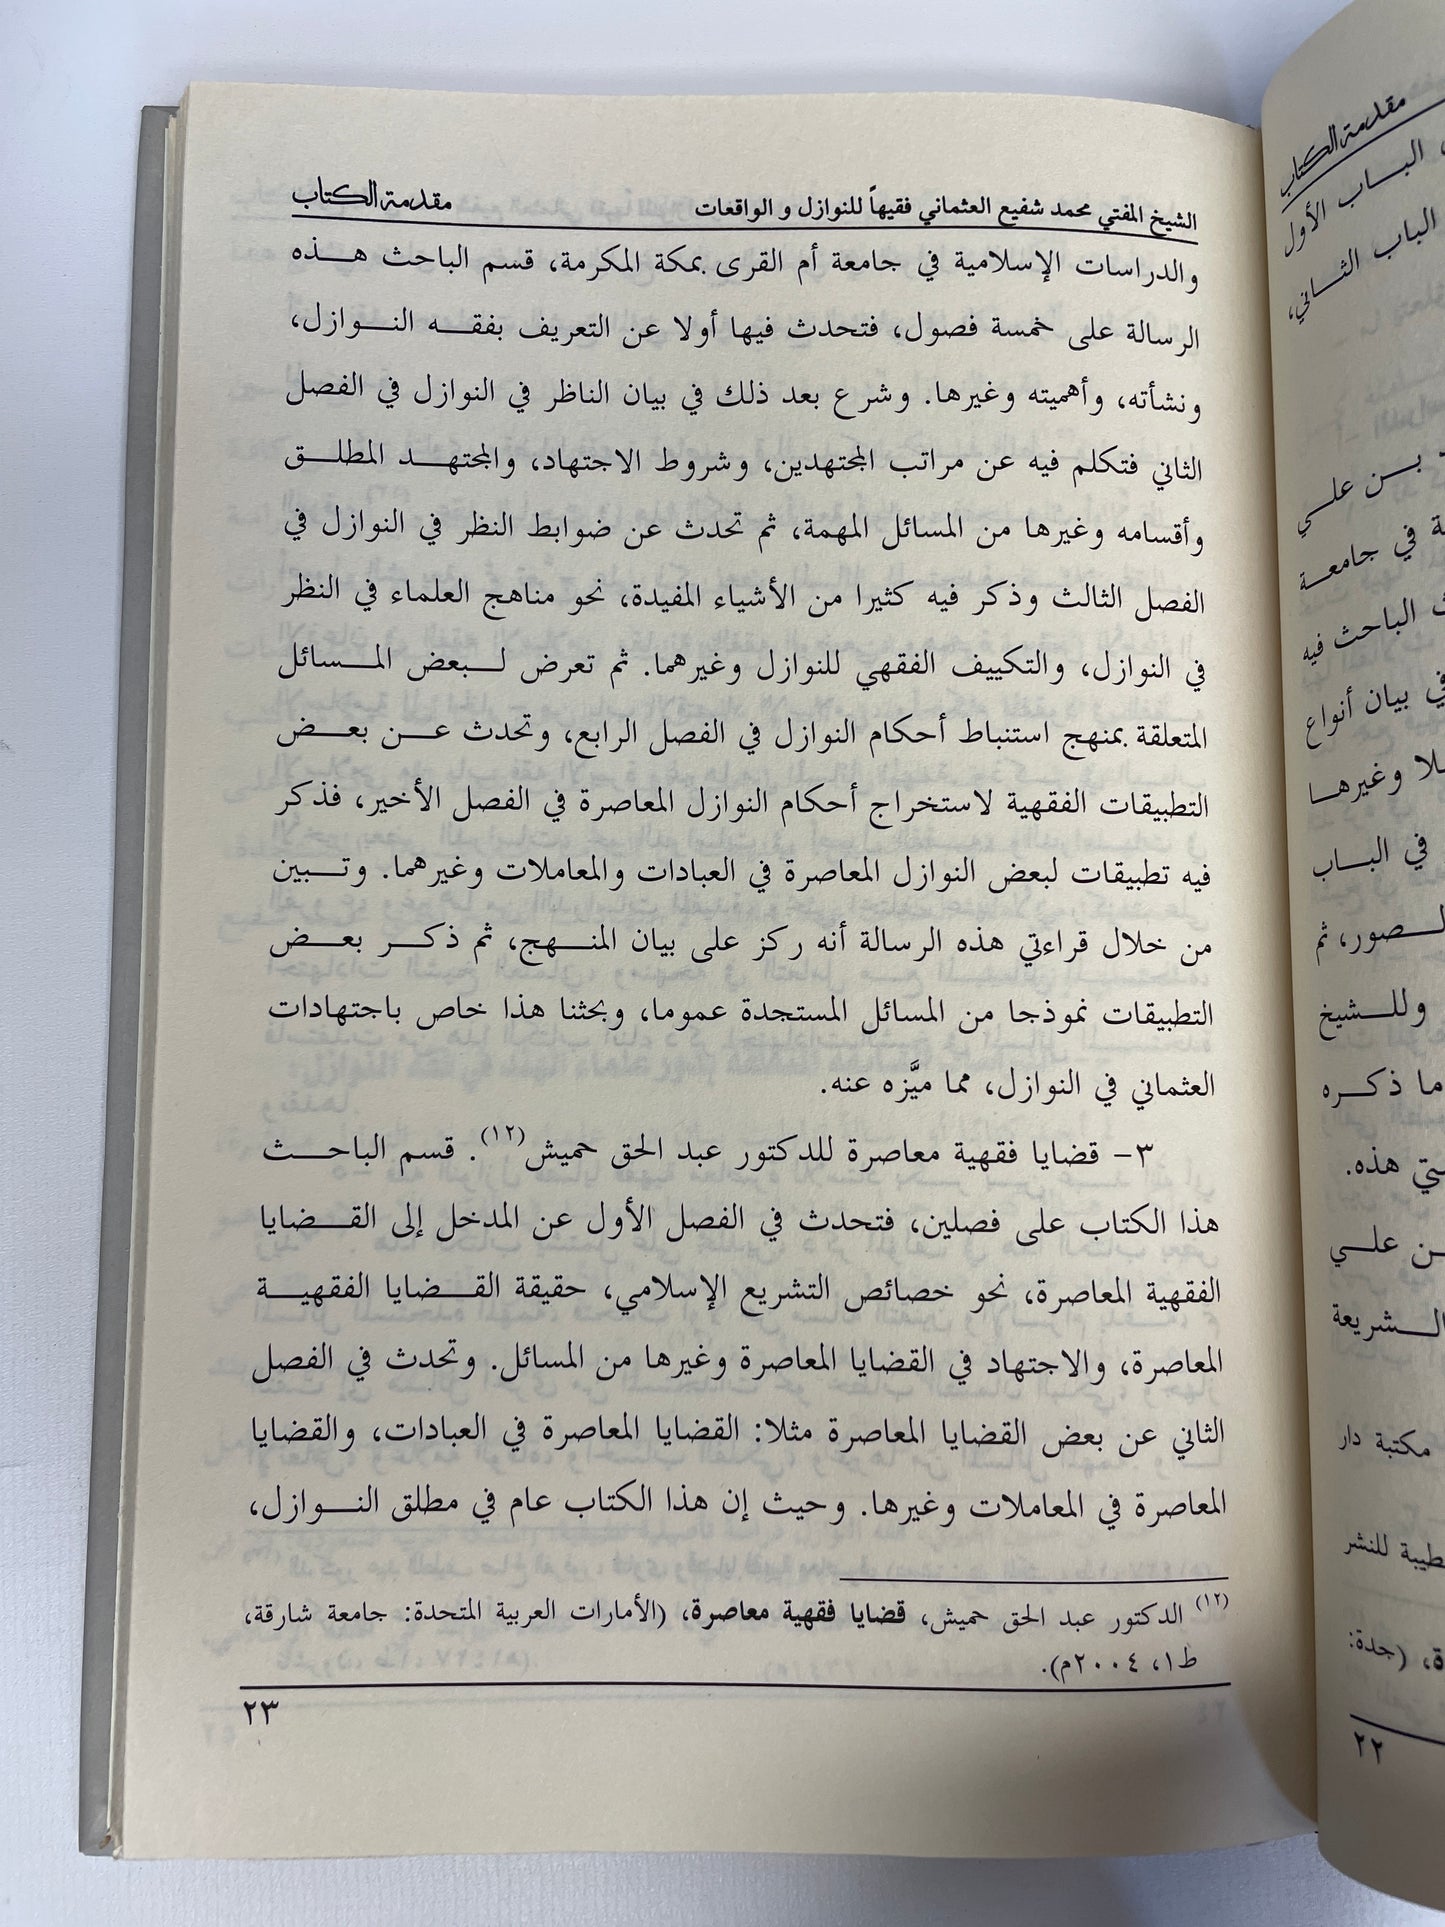 الشيخ المفتي محمد شفيع العثماني فقيهاً للنوازل و الواقعات مقدمة الكتاب
والدراسات الإسلامية في جامعة أم القرى بمكة المكرمة، قسم الباحث هذه
الرسالة على خمسة فصول، فتحدث فيها أولا عن التعريف بفقه النوازل،
ونشأته، وأهميته وغيرها. وشرع بعد ذلك في بيان الناظر في النوازل في الفصل
الثاني فتكلم فيه عن مراتب المجتهدين، وشروط الاجتهاد، والمجتهد المطلق
وأقسامه وغيرها من المسائل المهمة، ثم تحدث عن ضوابط النظر في النوازل في
الفصل الثالث وذكر فيه كثيرا من الأشياء المفيدة، نحو مناهج العلماء في النظر
في النوازل، والتكييف الفقهي للنوازل وغيرهما. ثم تعرض لبعض المسائل
المتعلقة بمنهج استنباط أحكام النوازل في الفصل الرابع، وتحدث عن بعض
التطبيقات الفقهية لاستخراج أحكام النوازل المعاصرة في الفصل الأخير، فذكر
فيه تطبيقات لبعض النوازل المعاصرة في العبادات والمعاملات وغيرهما. وتبين
من خلال قراءتي هذه الرسالة أنه ركز على بيان المنهج، ثم ذكر بعض
التطبيقات نموذجا من المسائل المستجدة عموما، وبحثنا هذا خاص باجتهادات
العثماني في النوازل، مما ميَّزه عنه.
٣- قضايا فقهية معاصرة للدكتور عبد الحق حميش(١٢). قسم الباحث
هذا الكتاب على فصلين، فتحدث في الفصل الأول عن المدخل إلى القضايا
الفقهية المعاصرة، نحو خصائص التشريع الإسلامي، حقيقة القضايا الفقهية
المعاصرة، والاجتهاد في القضايا المعاصرة وغيرها من المسائل. وتحدث في الفصل
الثاني عن بعض القضايا المعاصرة مثلا: القضايا المعاصرة في العبادات، والقضايا
المعاصرة في المعاملات وغيرها. وحيث إن هذا الكتاب عام في مطلق النوازل،
(١٢) الدكتور عبد الحق حميش، قضايا فقهية معاصرة، (الأمارات العربية المتحدة: جامعة شارقة،
ط١، ٢٠٠٤م).
٢٣
مقدمة الكتاب
الباب الأول
الباب الثاني،
بن علي
في جامعة
الباحث فيه
في بيان أنواع
وغيرها
في الباب
الصور، ثم
وللشيخ
ما ذكره
هذه.
علي
الشريعة
مكتبة دار
طيبة للنشر
(جدة:
٢٢